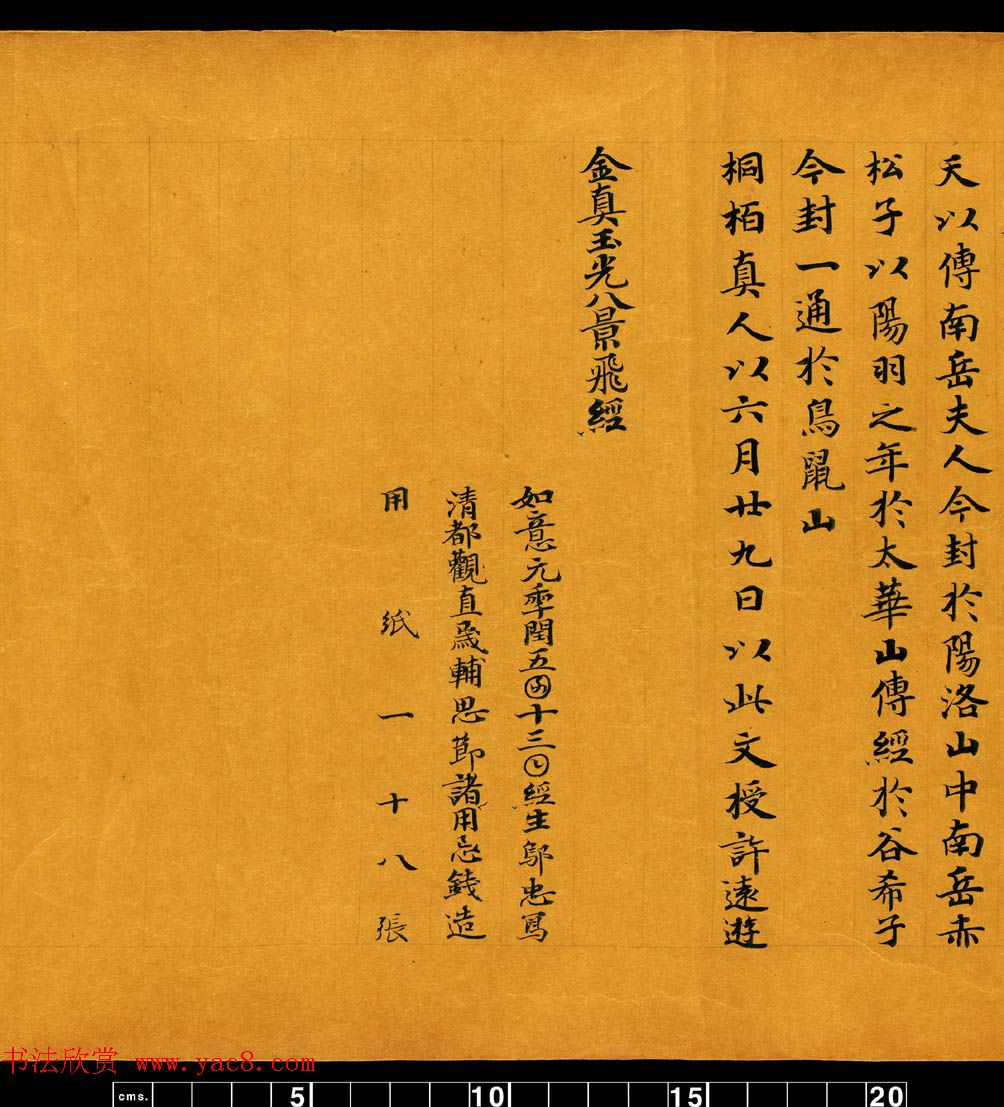 天以傳南岳夫人今封於陽洛山中南岳赤
松子以陽羽之年於太華山傳經於谷希子
今封一通於鳥鼠山
桐栢真人以六月廿九日以此文授許遠遊
金真玉光八景飛經
如意元秊閏五囝十三𡆠經生鄔忠寫
清都觀直歲輔思節諸用忌錢造
用紙一十八張
书法欣赏 www.yac8.com
cms. 5 10 15 20